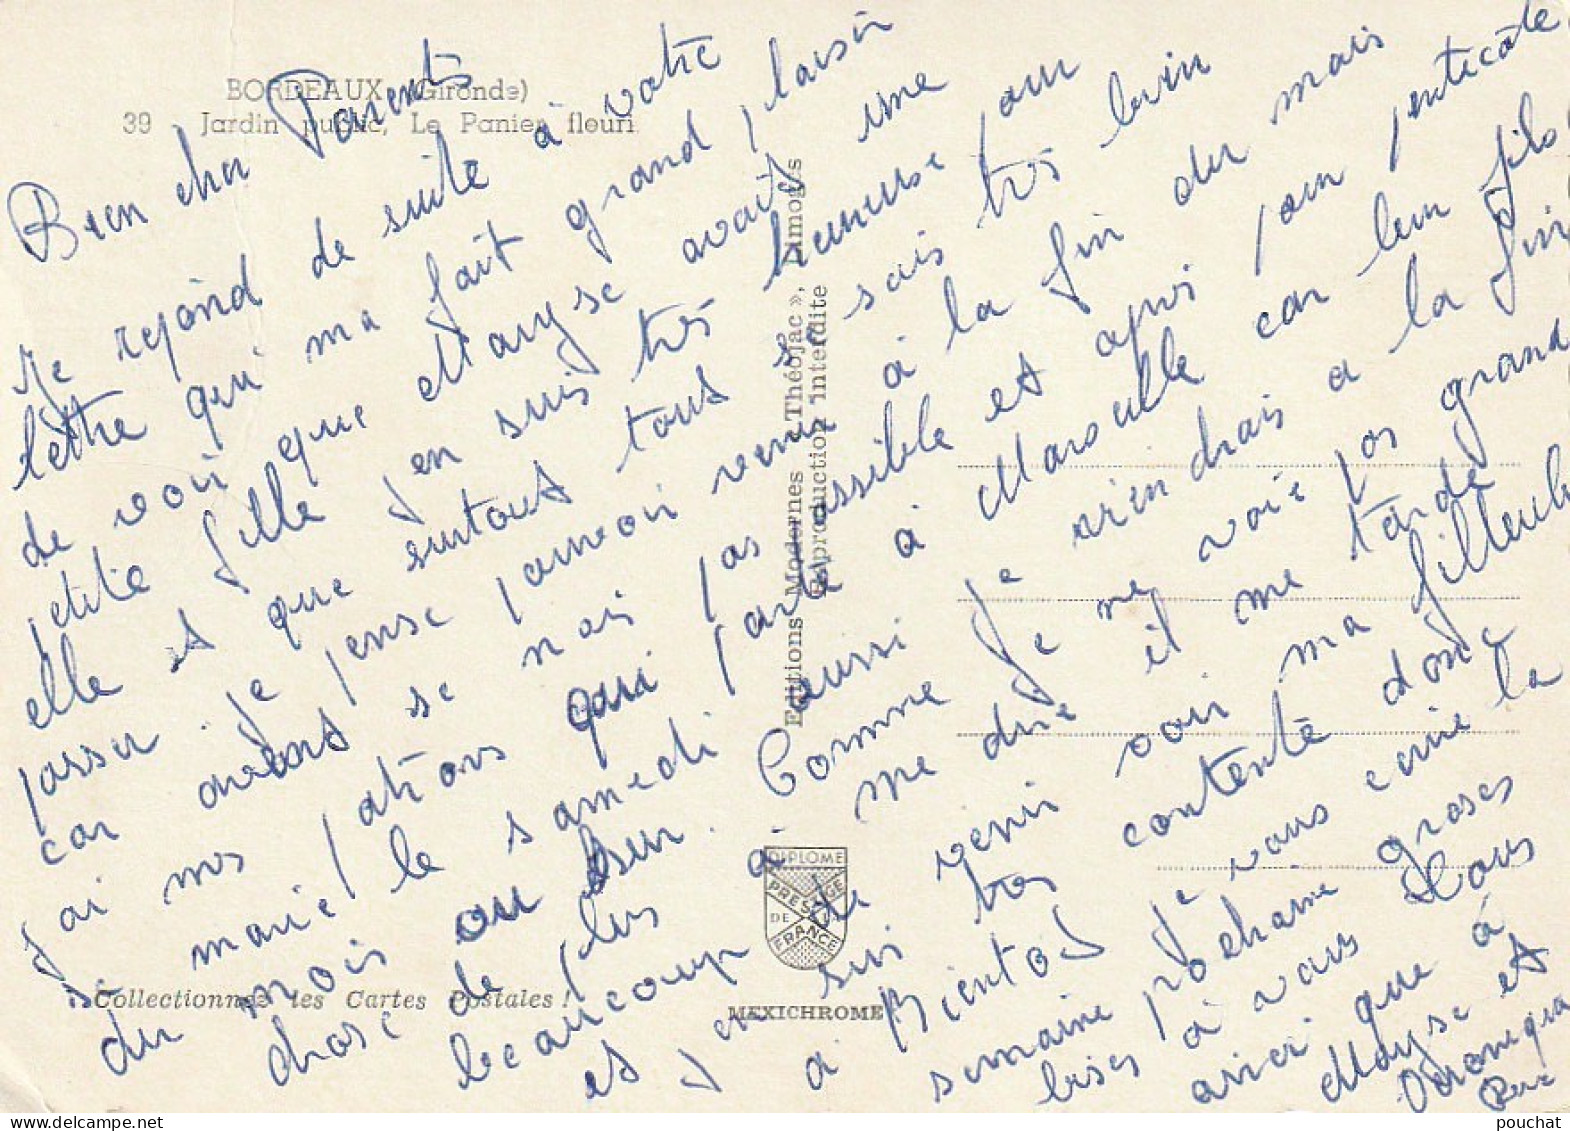 BORDEAUX (Gironde)
39 Jardin public, Le Panier fleuri
Bien cher Parents
Je repond de suite à votre
lettre qui ma fait grand plaisir
de voir que Maryse avait une
petite fille j'en suis très heureuse pour
elle et que surtout tout se sais très bien
passer. je pense pouvoir venir à la fin du mais
car avant se mois pas possible et apres pour penticôte
j'ai mes pations qui parte à Marseille car leur fils
se marie le samedi aussi je viendrais a la fin
du mois ou sur. Comme je ne voie pas grand
chose de plus a me dire il me tarde
beaucoup de venir voir ma filleule
et j'en suis tres contente donc
a Bientot je vous ecrie la
semaine pochaine grosses
bises à vous Tous
ainsi que à
Maryse et
Veronique
Rene
Editions Modernes « Théojac », Limoges
Reproduction interdite
DIPLOME
PRESTIGE
DE LA
FRANCE
Collectionnez les Cartes Postales !
MEXICHROME
pouchat